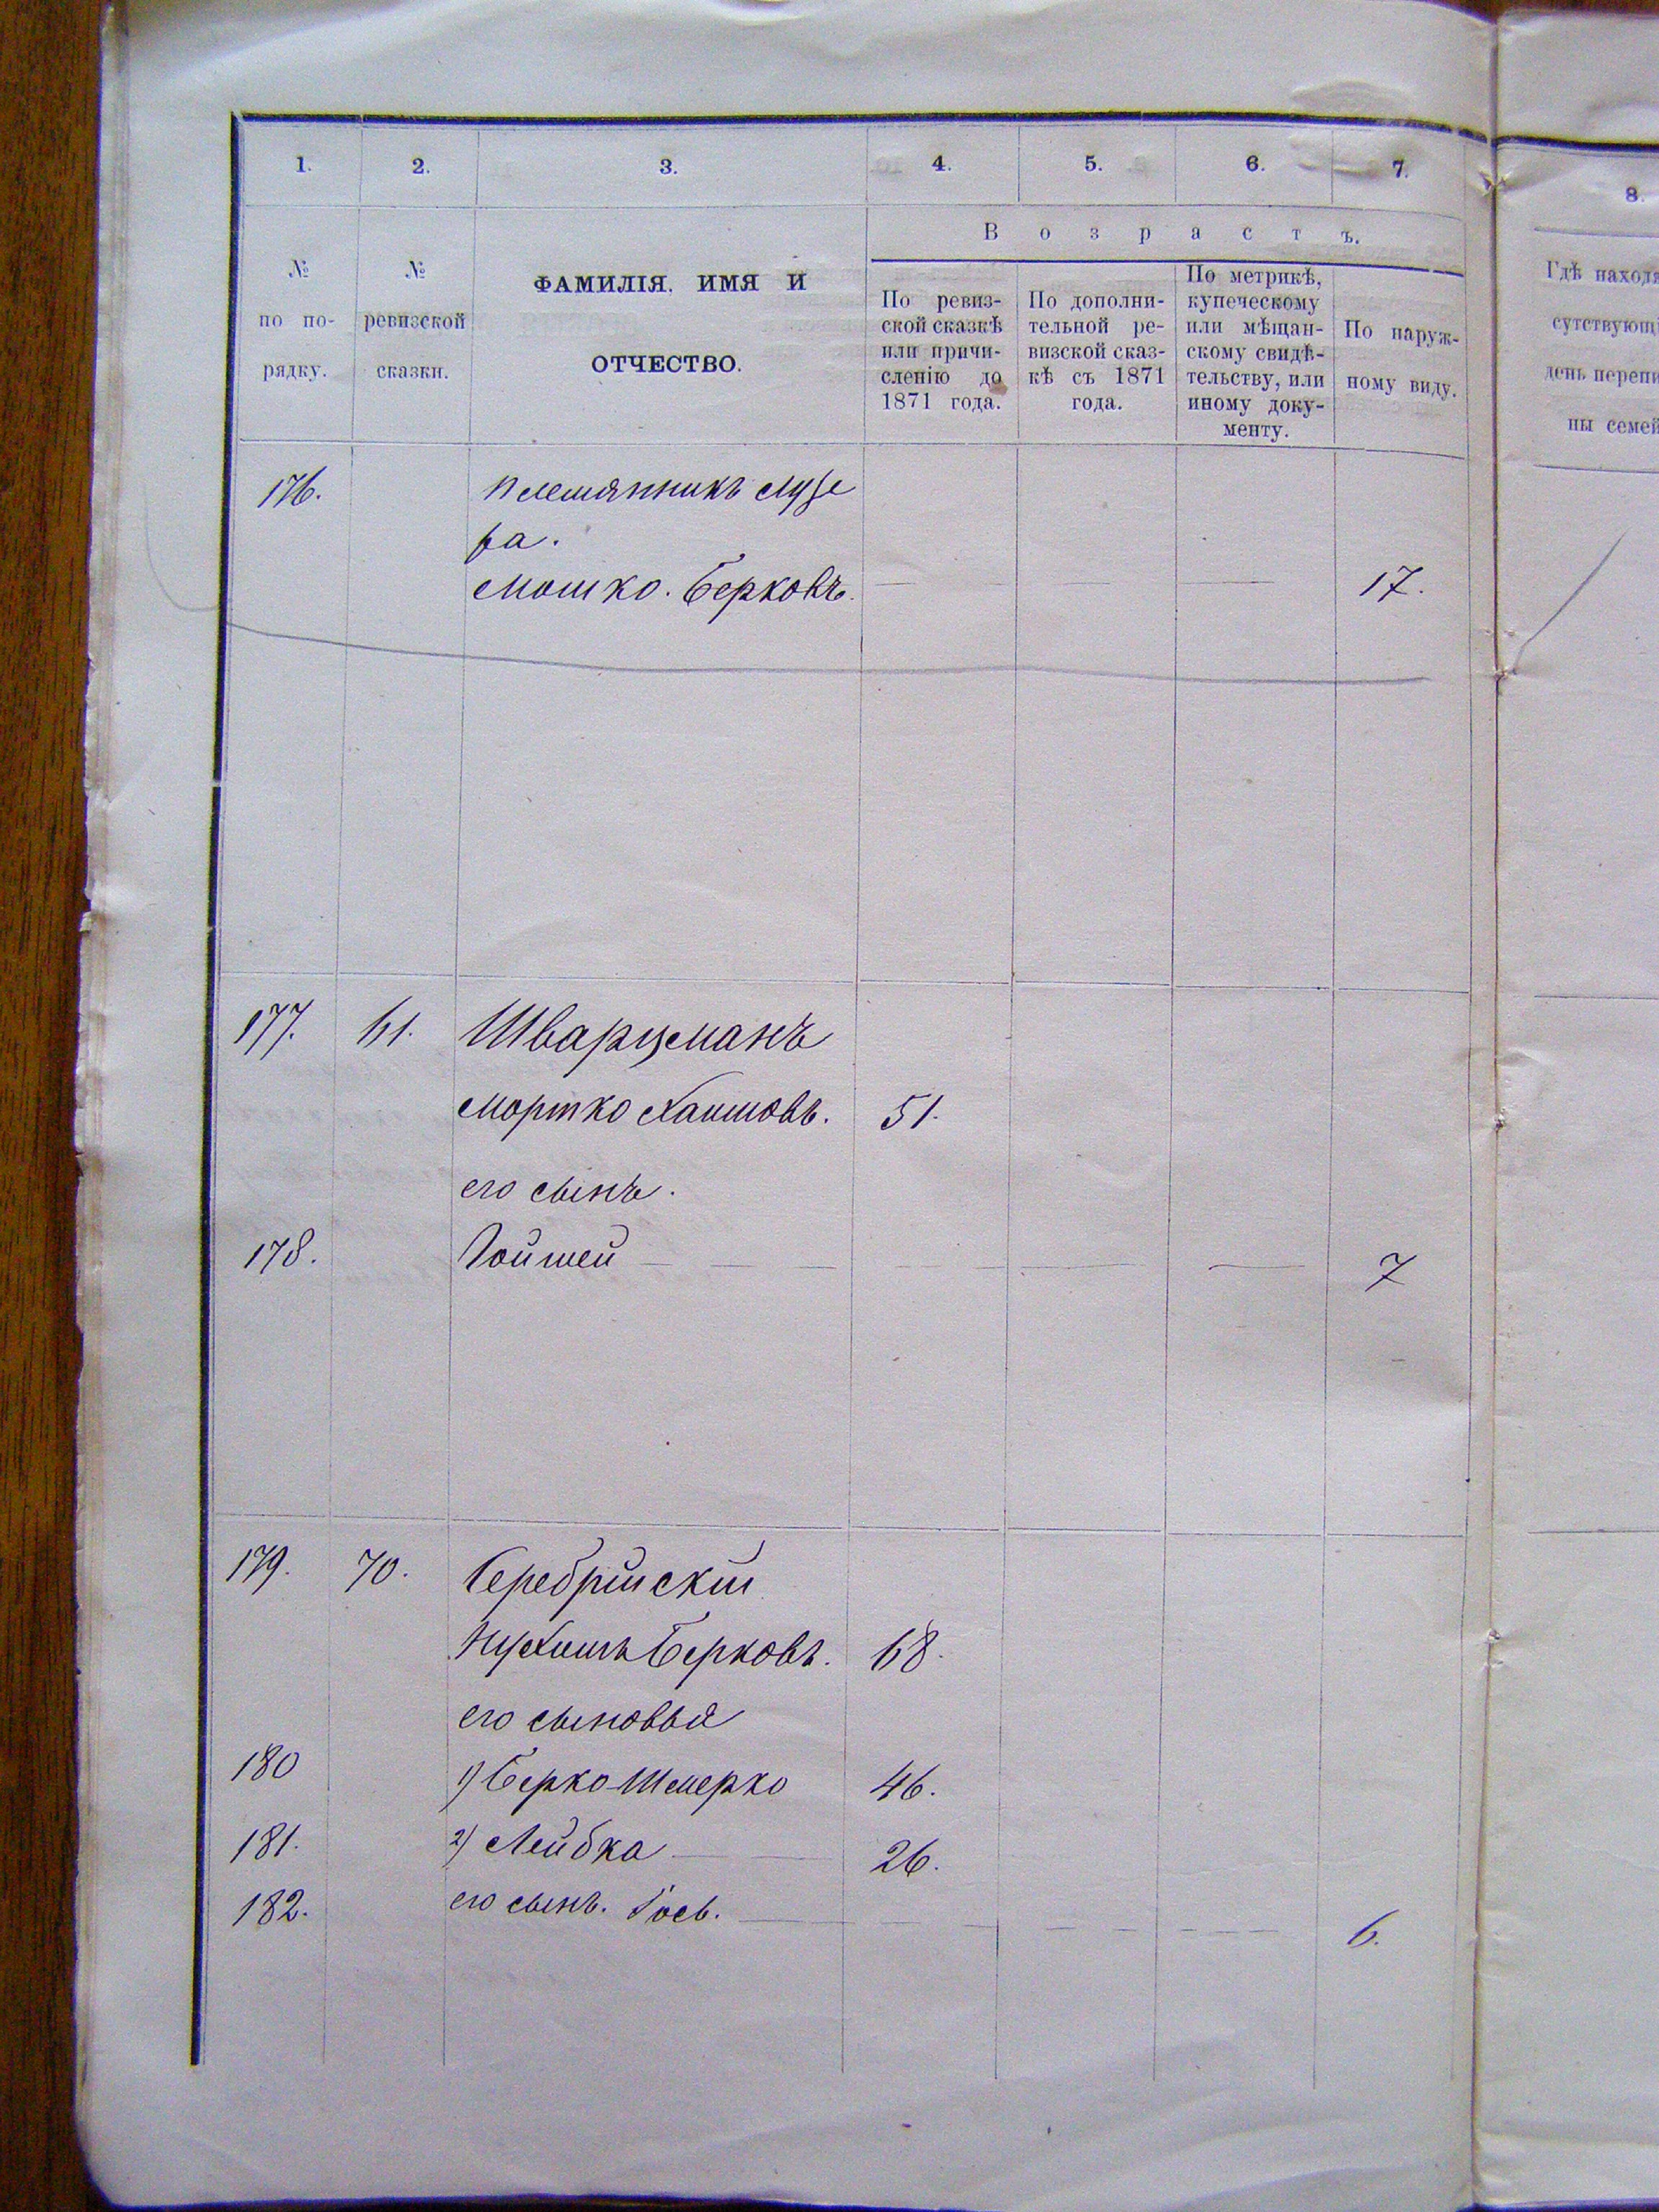 1.
2.
3.
4.
5.
6.
7.
8.
Возрастъ.
№ по по-
рядку.
№
ревизской
сказки.
ФАМИЛІЯ, ИМЯ И
ОТЧЕСТВО.
По ревиз-
ской сказкѣ
или причи-
сленію до
1871 года.
По дополни-
тельной ре-
визской сказ-
кѣ съ 1871
года.
По метрикѣ,
купеческому
или мѣщан-
скому свидѣ-
тельству, или
иному доку-
менту.
По наруж-
ному виду.
Гдѣ находя
сутствующі
день перепи
ны семей
176. племянникъ Лузе
ра.
Мошко. Берковъ. — — — 17.
177. 61. Шварцманъ
Мортко Хаимовъ. 51.
его сынъ.
178. Гойшей — — — — — — 7
179. 70. Серебрійскій
Нухимъ Берковъ. 68.
его сыновья
180 1) Берко-Шмерко 46.
181. 2) Лейбка — — 26.
182. его сынъ. Іось. — — — — 6.